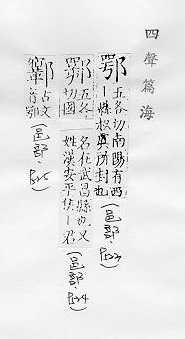 四聲篇海
鄂 五各切南陽有西
所封也
(邑部. P523)
五各切國
名在武昌縣也又
姓漢安平侯丨君
(邑部. P524)
古文
音鄂
(邑部. P525)